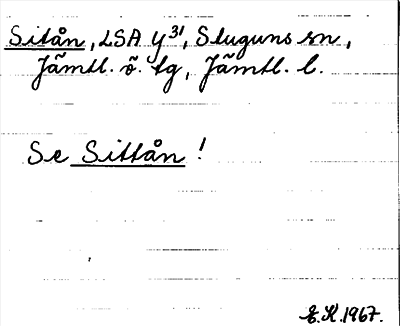 Sitån, LSA y³¹, Sluguns sn,
Jämtl. ö. tg, Jämtl. l.
Se Sittån!
E.K. 1967.